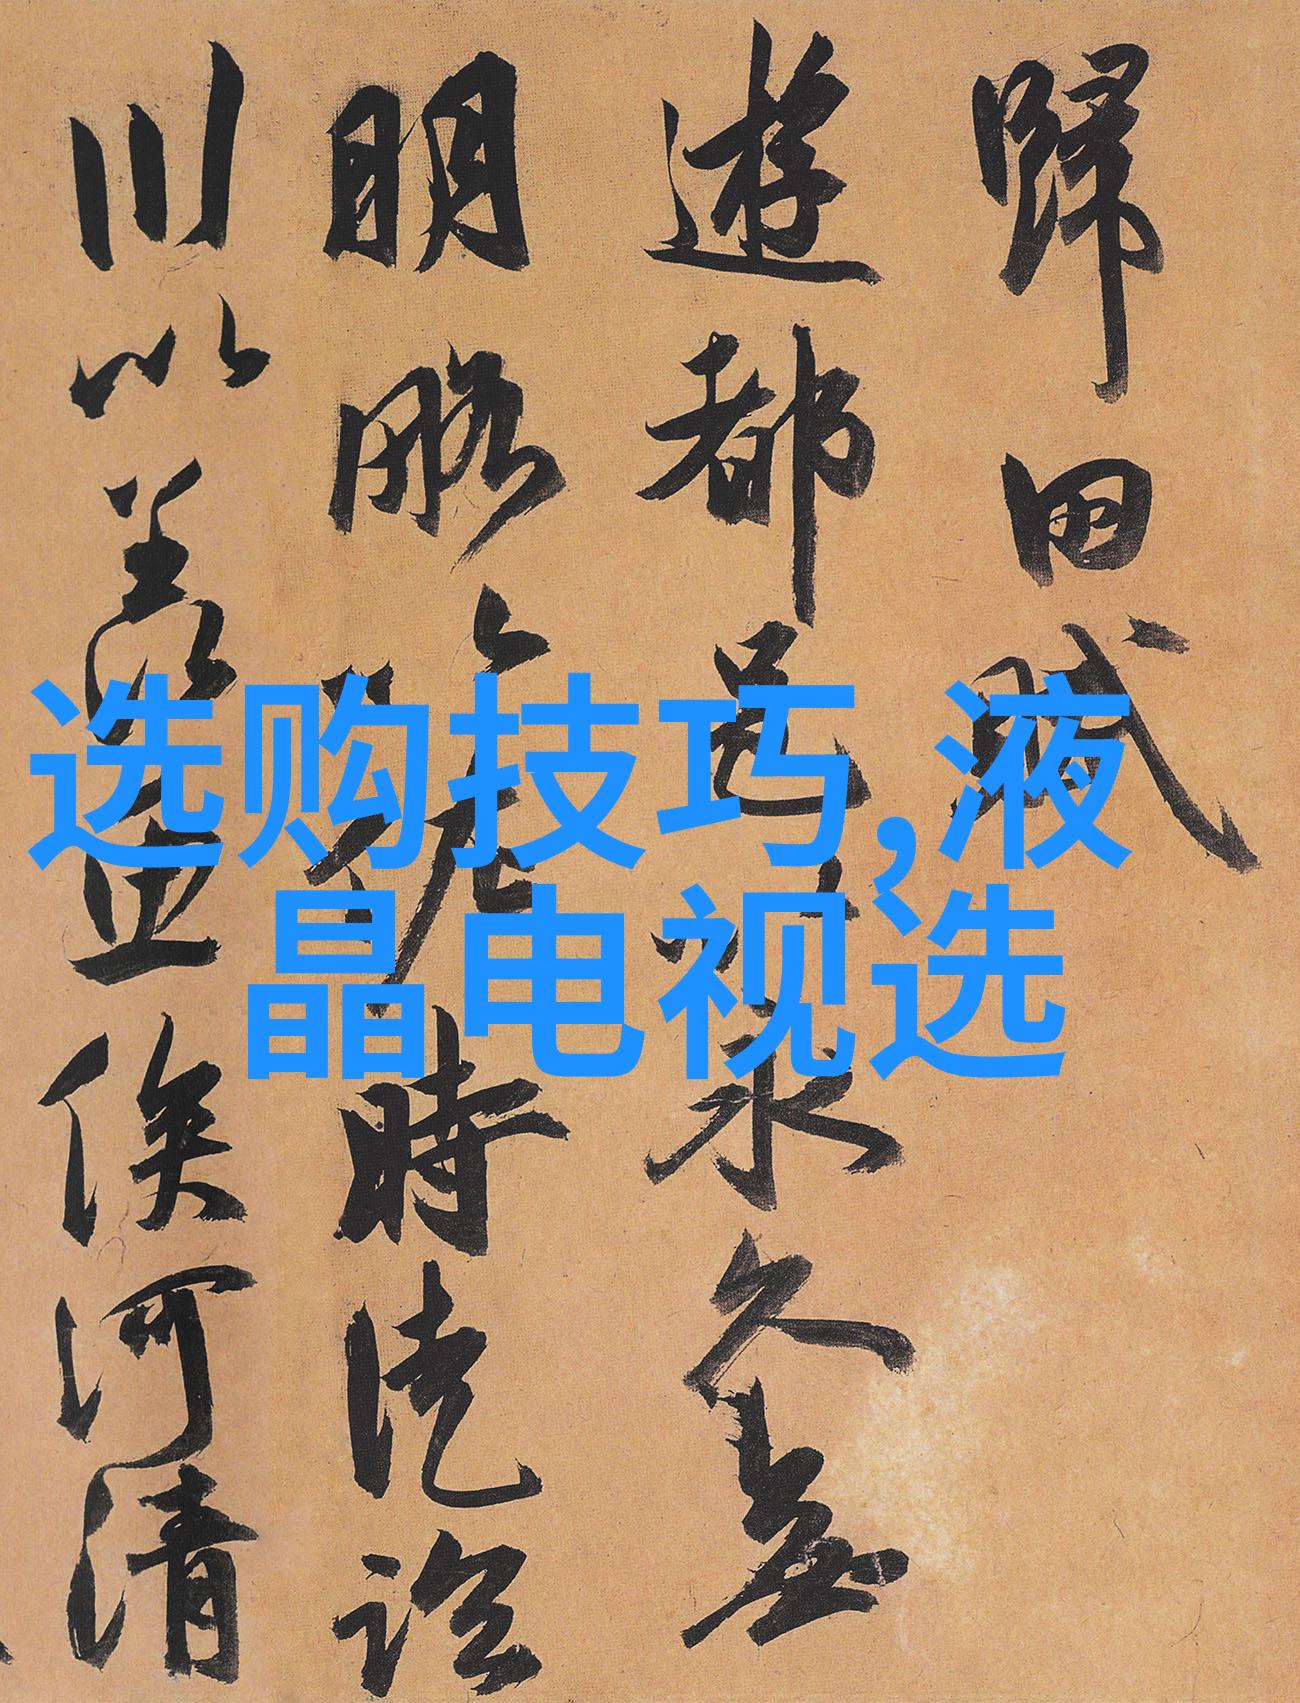 歸田賦
遊都邑以永久無
明略以佐時徒臨
川以羡魚俟河清
选购技巧,液
晶电视选